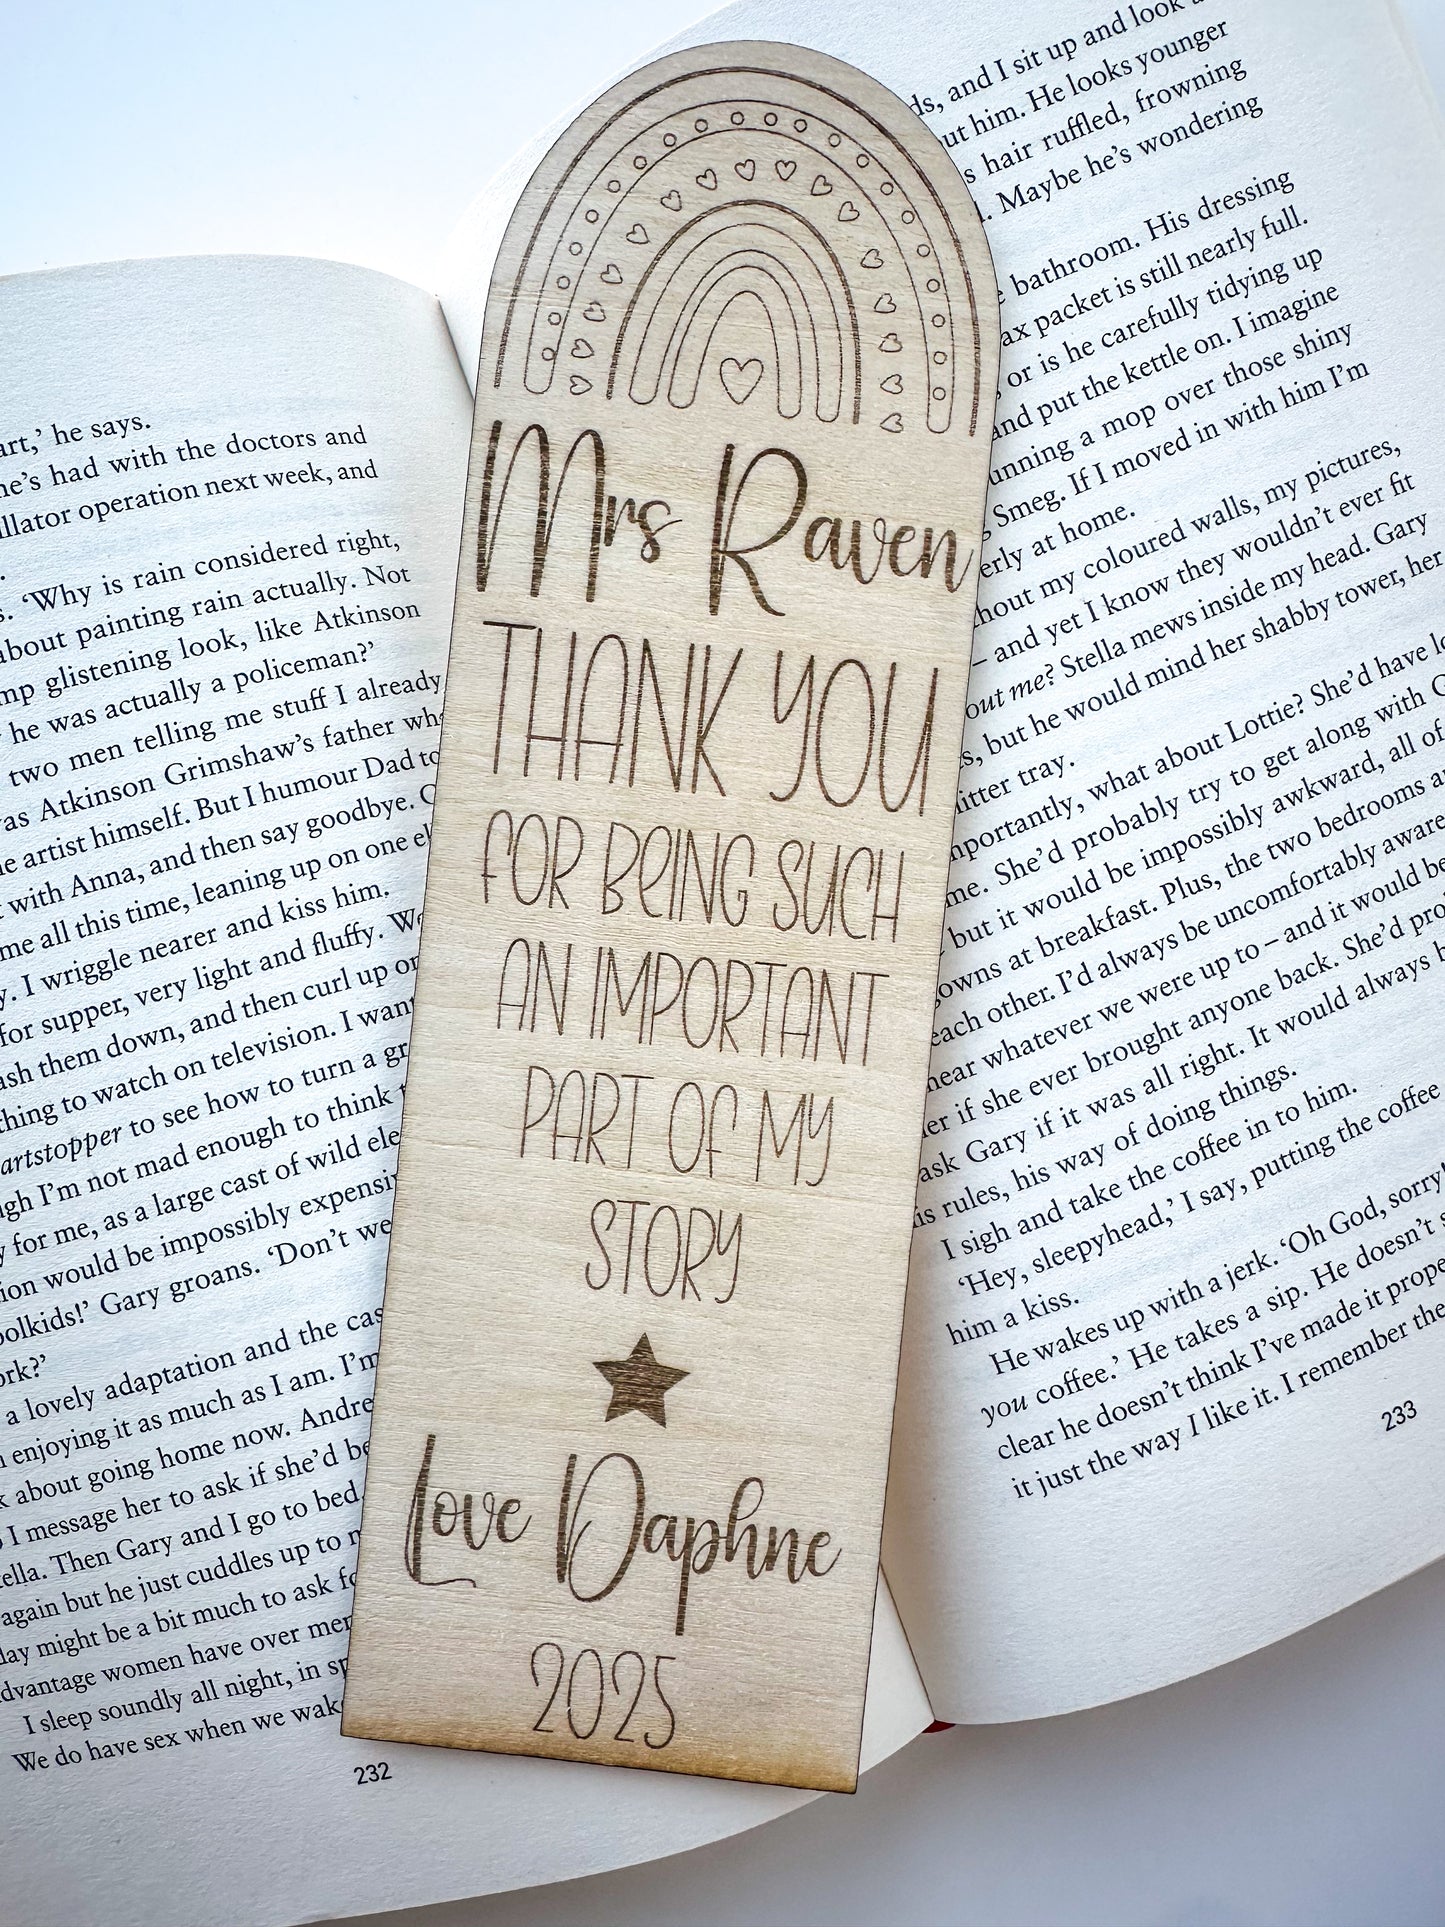 art,' he says.
he's had with the doctors and
illator operation next week, and
'Why is rain considered right,
about painting rain actually. Not
mp glistening look, like Atkinson
he was actually a policeman?'
two men telling me stuff I already
as Atkinson Grimshaw's father
e artist himself. But I humour Dad to
with Anna, and then say goodbye.
me all this time, leaning up on one
I wriggle nearer and kiss him.
for supper, very light and fluffy.
ash them down, and then curl up
thing to watch on television. I
artstopper to see how to turn a
gh I'm not mad enough to think
for me, as a large cast of wild
ion would be impossibly
oolkids!' Gary groans. 'Don't
ork?'
a lovely adaptation and the
enjoying it as much as I am. I'm
about going home now.
I message her to ask if she'd
ella. Then Gary and I go to bed
again but he just cuddles up to
day might be a bit much to ask
dvantage women have over
I sleep soundly all night, in
We do have sex when we
232
Mrs Raven
THANK YOU
FOR BEING SUCH
AN IMPORTANT
PART OF MY
STORY
Love Daphne
2025
ds, and I sit up and look
ut him. He looks younger
s hair ruffled, frowning
. Maybe he's wondering
bathroom. His dressing
ax packet is still nearly full.
or is he carefully tidying up
and put the kettle on. I imagine
unning a mop over those shiny
Smeg. If I moved in with him I'm
erly at home.
hout my coloured walls, my pictures,
– and yet I know they wouldn't ever fit
out me? Stella mews inside my head. Gary
s, but he would mind her shabby tower, her
litter tray.
mportantly, what about Lottie? She'd have
me. She'd probably try to get along with
but it would be impossibly awkward, all of
gowns at breakfast. Plus, the two bedrooms
each other. I'd always be uncomfortably aware
hear whatever we were up to – and it would be
er if she ever brought anyone back. She'd
ask Gary if it was all right. It would always
is rules, his way of doing things.
I sigh and take the coffee in to him.
'Hey, sleepyhead,' I say, putting the coffee
him a kiss.
He wakes up with a jerk. 'Oh God, sorry!
you coffee.' He takes a sip. He doesn't
clear he doesn't think I've made it
it just the way I like it. I remember the
233